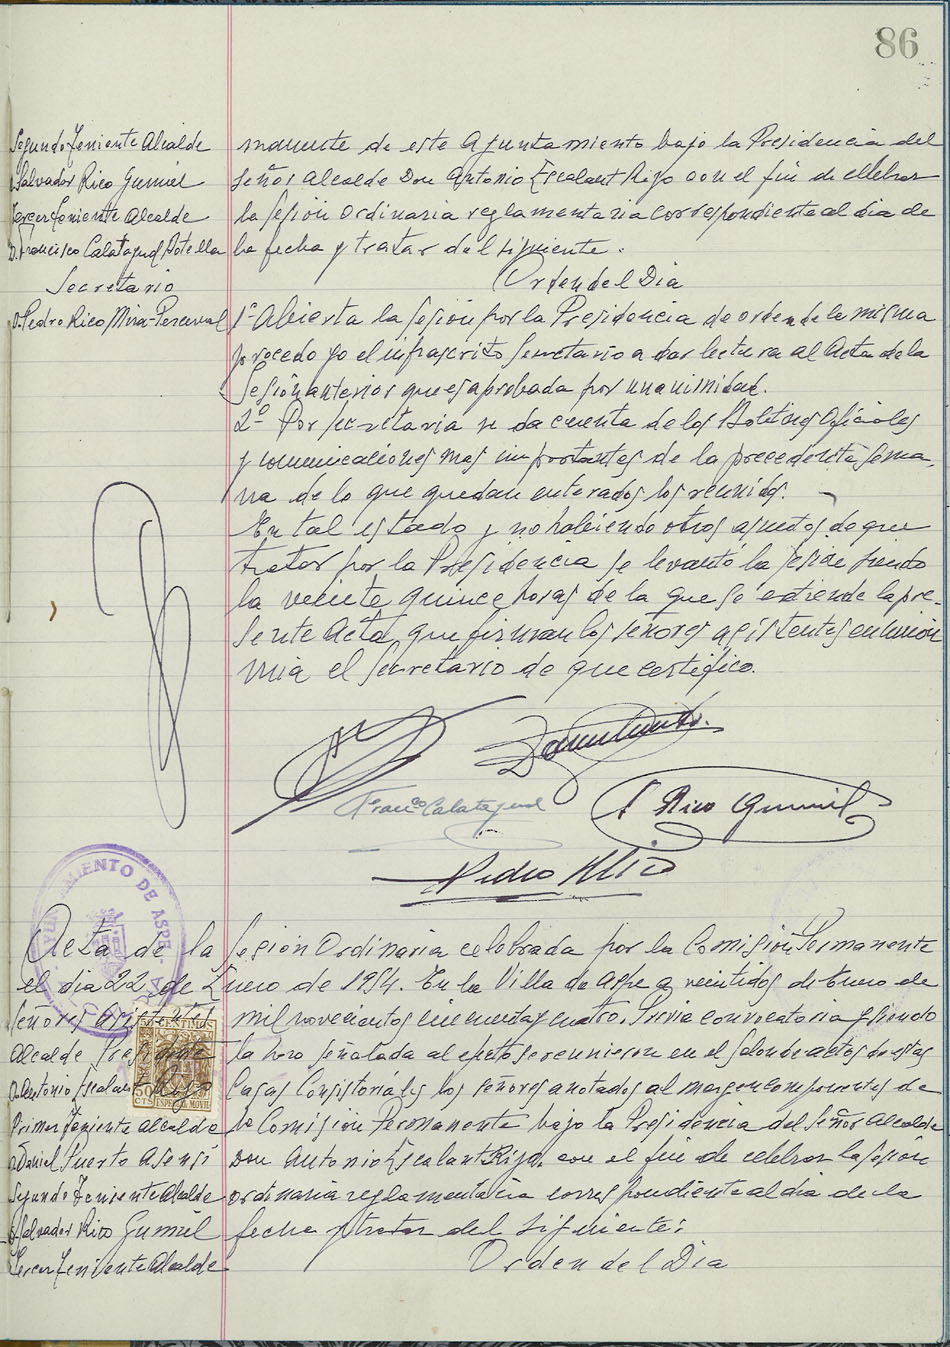 86
Segundo Teniente Alcalde
D. Salvador Rico Gumiel
Tercer Teniente Alcalde
D. Francisco Calatayud Botella
Secretario
D. Pedro Rico Mira-Perceval
manente de este Ayuntamiento bajo la Presidencia del
Señor Alcalde Don Antonio Escalant Rizo con el fin de celebrar
la Sesión Ordinaria reglamentaria correspondiente al dia de
la fecha y tratar del siguiente.
Orden del Dia
1º Abierta la Sesión por la Presidencia de orden de la misma
procedo yo el infrascrito Secretario a dar lectura al Acta de la
Sesión anterior que es aprobada por unanimidad.
2º Por secretaria se da cuenta de los Boletines Oficiales
y comunicaciones mas importantes de la precedente Sema-
na de lo que quedan enterados los reunidos.
En tal estado y no habiendo otros asuntos de que
tratar por la Presidencia se levantó la sesión siendo
la veinte quince horas de la que se extiende la pre-
sente Acta, que firman los señores asistentes en unión
mia el Secretario de que certifico.
Franco Calatayud
S Rico Gumiel
Pedro Rico
AYUNTAMIENTO DE ASPE
Acta de la Sesión Ordinaria celebrada por la Comisión Permanente
el dia 22 de Enero de 1954. En la Villa de Aspe a veintidos de Enero de
Señores asistentes
Alcalde Presidente
D. Antonio Escalant Rizo
Primer Teniente Alcalde
D. Daniel Puerto Asensi
Segundo Teniente Alcalde
D. Salvador Rico Gumiel
Tercer Teniente Alcalde
50 CENTIMOS
50 CTS
ESPECIAL MOVIL
mil novecientos cincuenta y cuatro. Previa convocatoria y siendo
la hora señalada al efecto se reunieron en el Salon de actos de estas
Casas Consistoriales los señores anotados al margen componentes de
la Comisión Permanente bajo la Presidencia del Señor Alcalde
Don Antonio Escalant Rizo, con el fin de celebrar la sesión
ordinaria reglamentaria correspondiente al dia de la
fecha y tratar del siguiente:
Orden del Dia